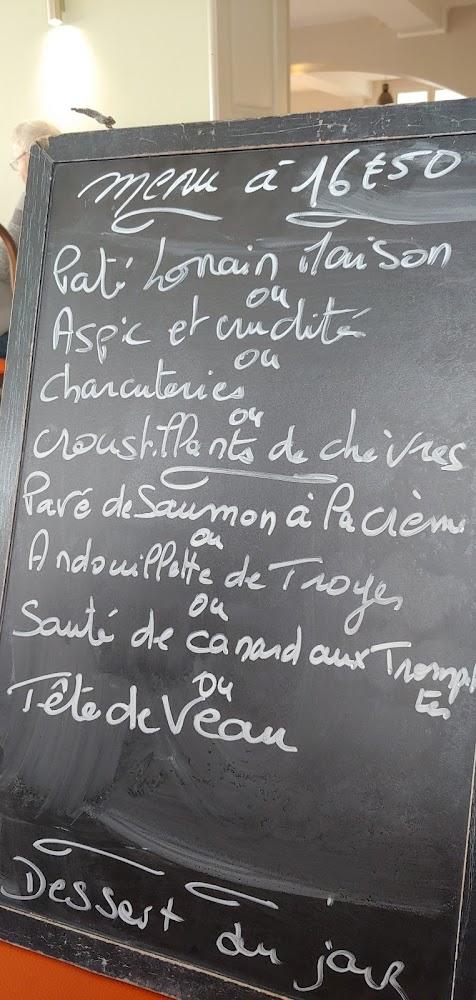 menu à 16€50
Paté Lorrain Maison
ou
Aspic et crudité
ou
charcuteries
ou
croustillants de chèvres
Pavé de Saumon à la crème
ou
Andouillette de Troyes
ou
Sauté de canard aux Trompet
tes
ou
Tête de Veau
Dessert du jour